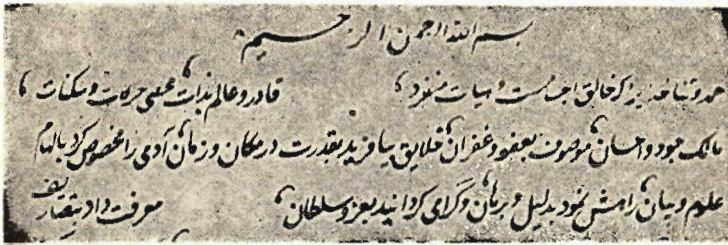 بسم الله الرحمن الرحیم
حمد و ثنا خدیرا که خالق اجسامست و بهیأت منفرد قادر و عالم بذات محصی حرکات و سکنات
مالک جود و احسان موصوف بعفو و غفران خلایق بیافرید بقدرت در مکان و زمان آدمی را مخصوص کرد بالهام
علوم و بیان راهش نمود بدلیل و برهان و گرامی گردانید بعز و سلطان معرفت داد بتصاریف